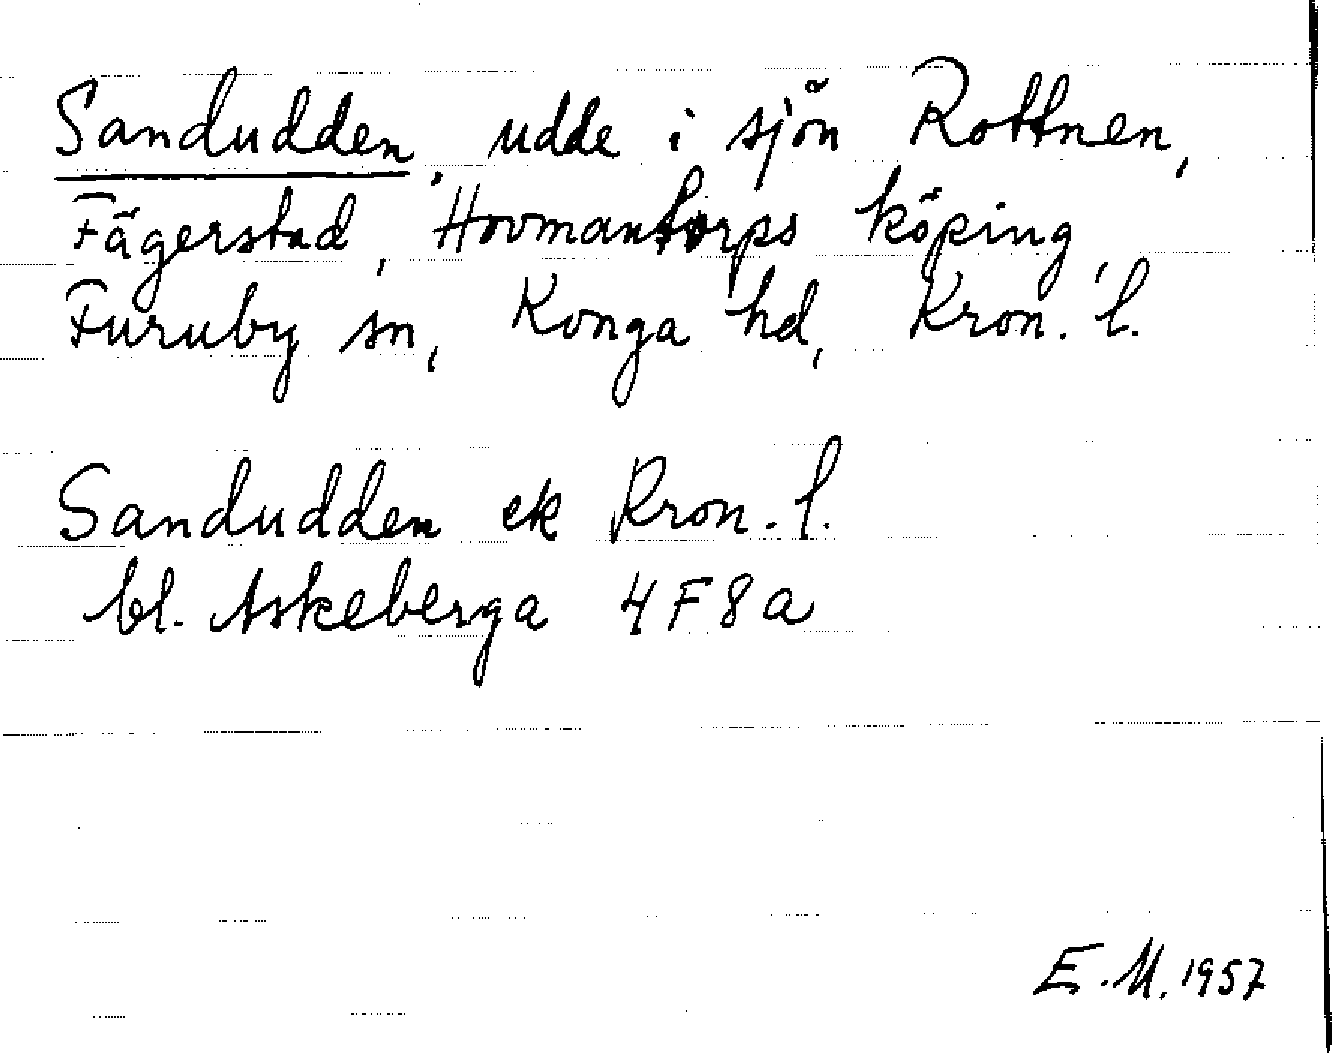 Sandudden, udde i sjön Rottnen,
Fägerstad, Hovmantorps köping,
Furuby sn, Konga hd, Kron. l.
Sandudden ek Kron. l.
bl. Askeberga 4F8a
E.M. 1957